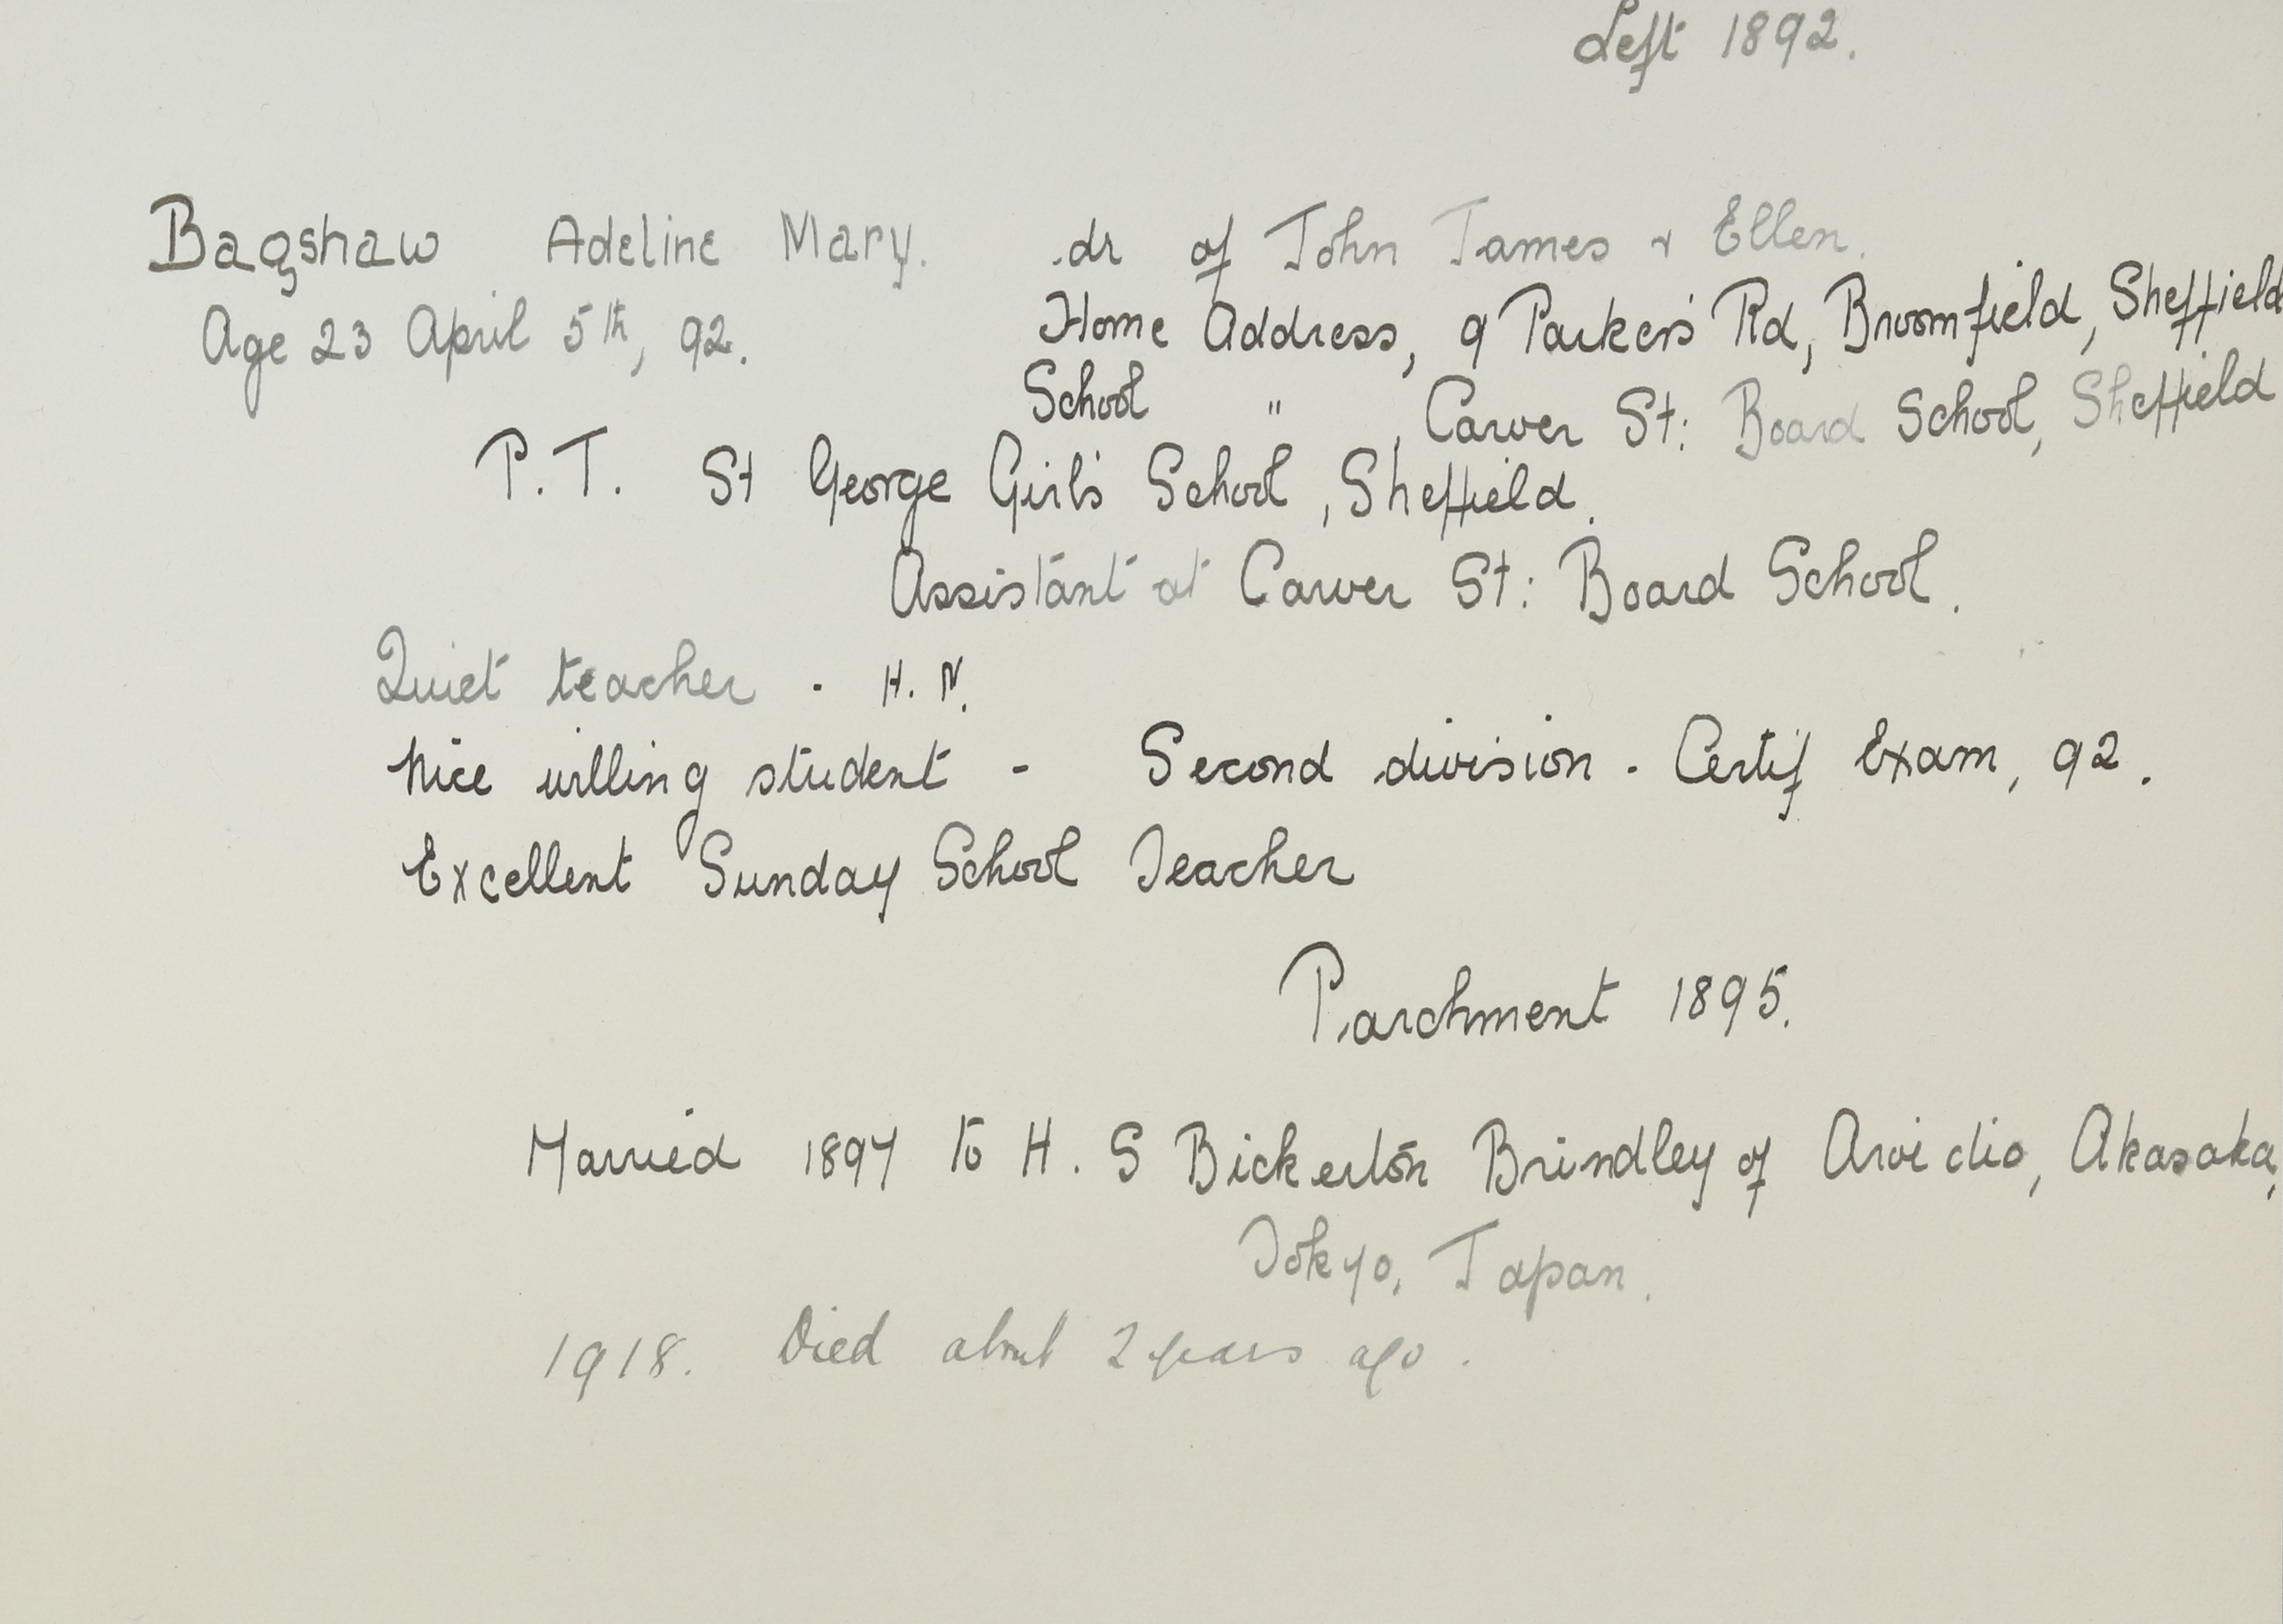 Left 1892.
Bagshaw Adeline Mary. dr of John James & Ellen.
Age 23 April 5th, 92. Home Address, 9 Parker's Rd, Broomfield, Sheffield
School " , Carver St: Board School, Sheffield
P.T. St George Girl's School, Sheffield.
Assistant at Carver St: Board School.
Quiet teacher - H. N.
Nice willing student - Second division - Certif Exam, 92.
Excellent Sunday School Teacher
Parchment 1895.
Married 1897 to H. S Bickerton Brindley of Akasaka,
Tokyo, Japan.
1918. Died about 2 years ago.